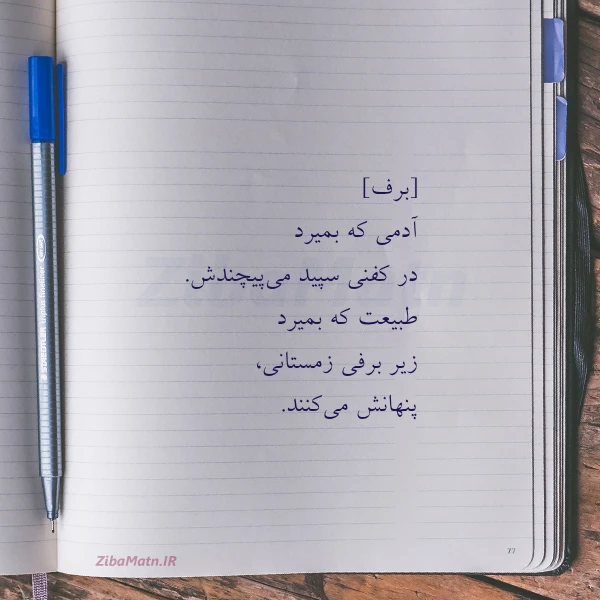 [برف]
آدمی که بمیرد
در کفنی سپید می‌پیچندش.
طبیعت که بمیرد
زیر برفی زمستانی،
پنهانش می‌کنند.
ZibaMatn
ZibaMatn.IR
77
STAEDTLER triplus fineliner